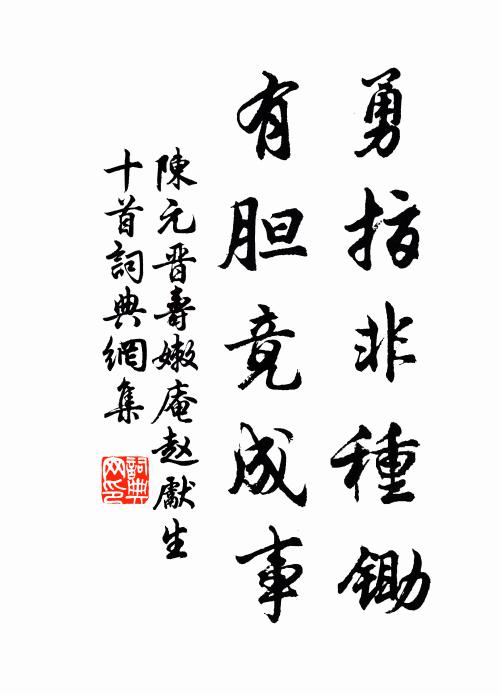 勇指非種鋤
有胆竟成事
陳元晋壽嫩庵赵獻生
十首詞典網集
詞典
网印